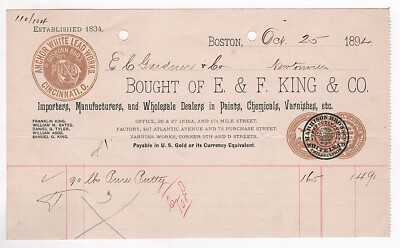 110/114
ESTABLISHED 1834.
BOSTON, Oct. 25 1894
ANCHOR WHITE LEAD WORKS
CINCINNATI, O.
E. C. Gardner & Co Newtonville
BOUGHT OF E. & F. KING & CO.
Importers, Manufacturers, and Wholesale Dealers in Paints, Chemicals, Varnishes, etc.
FRANKLIN KING,
WILLIAM M. BATES,
DANIEL G. TYLER,
WILLIAM AGGE,
SAMUEL G. KING.
OFFICE, 26 & 27 INDIA, AND 171 MILK STREET.
FACTORY, 407 ATLANTIC AVENUE AND 70 PURCHASE STREET.
VARNISH WORKS, CORNER 5TH AND D STREETS.
Payable in U. S. Gold or its Currency Equivalent.
90 lbs Pure Putty 165 149